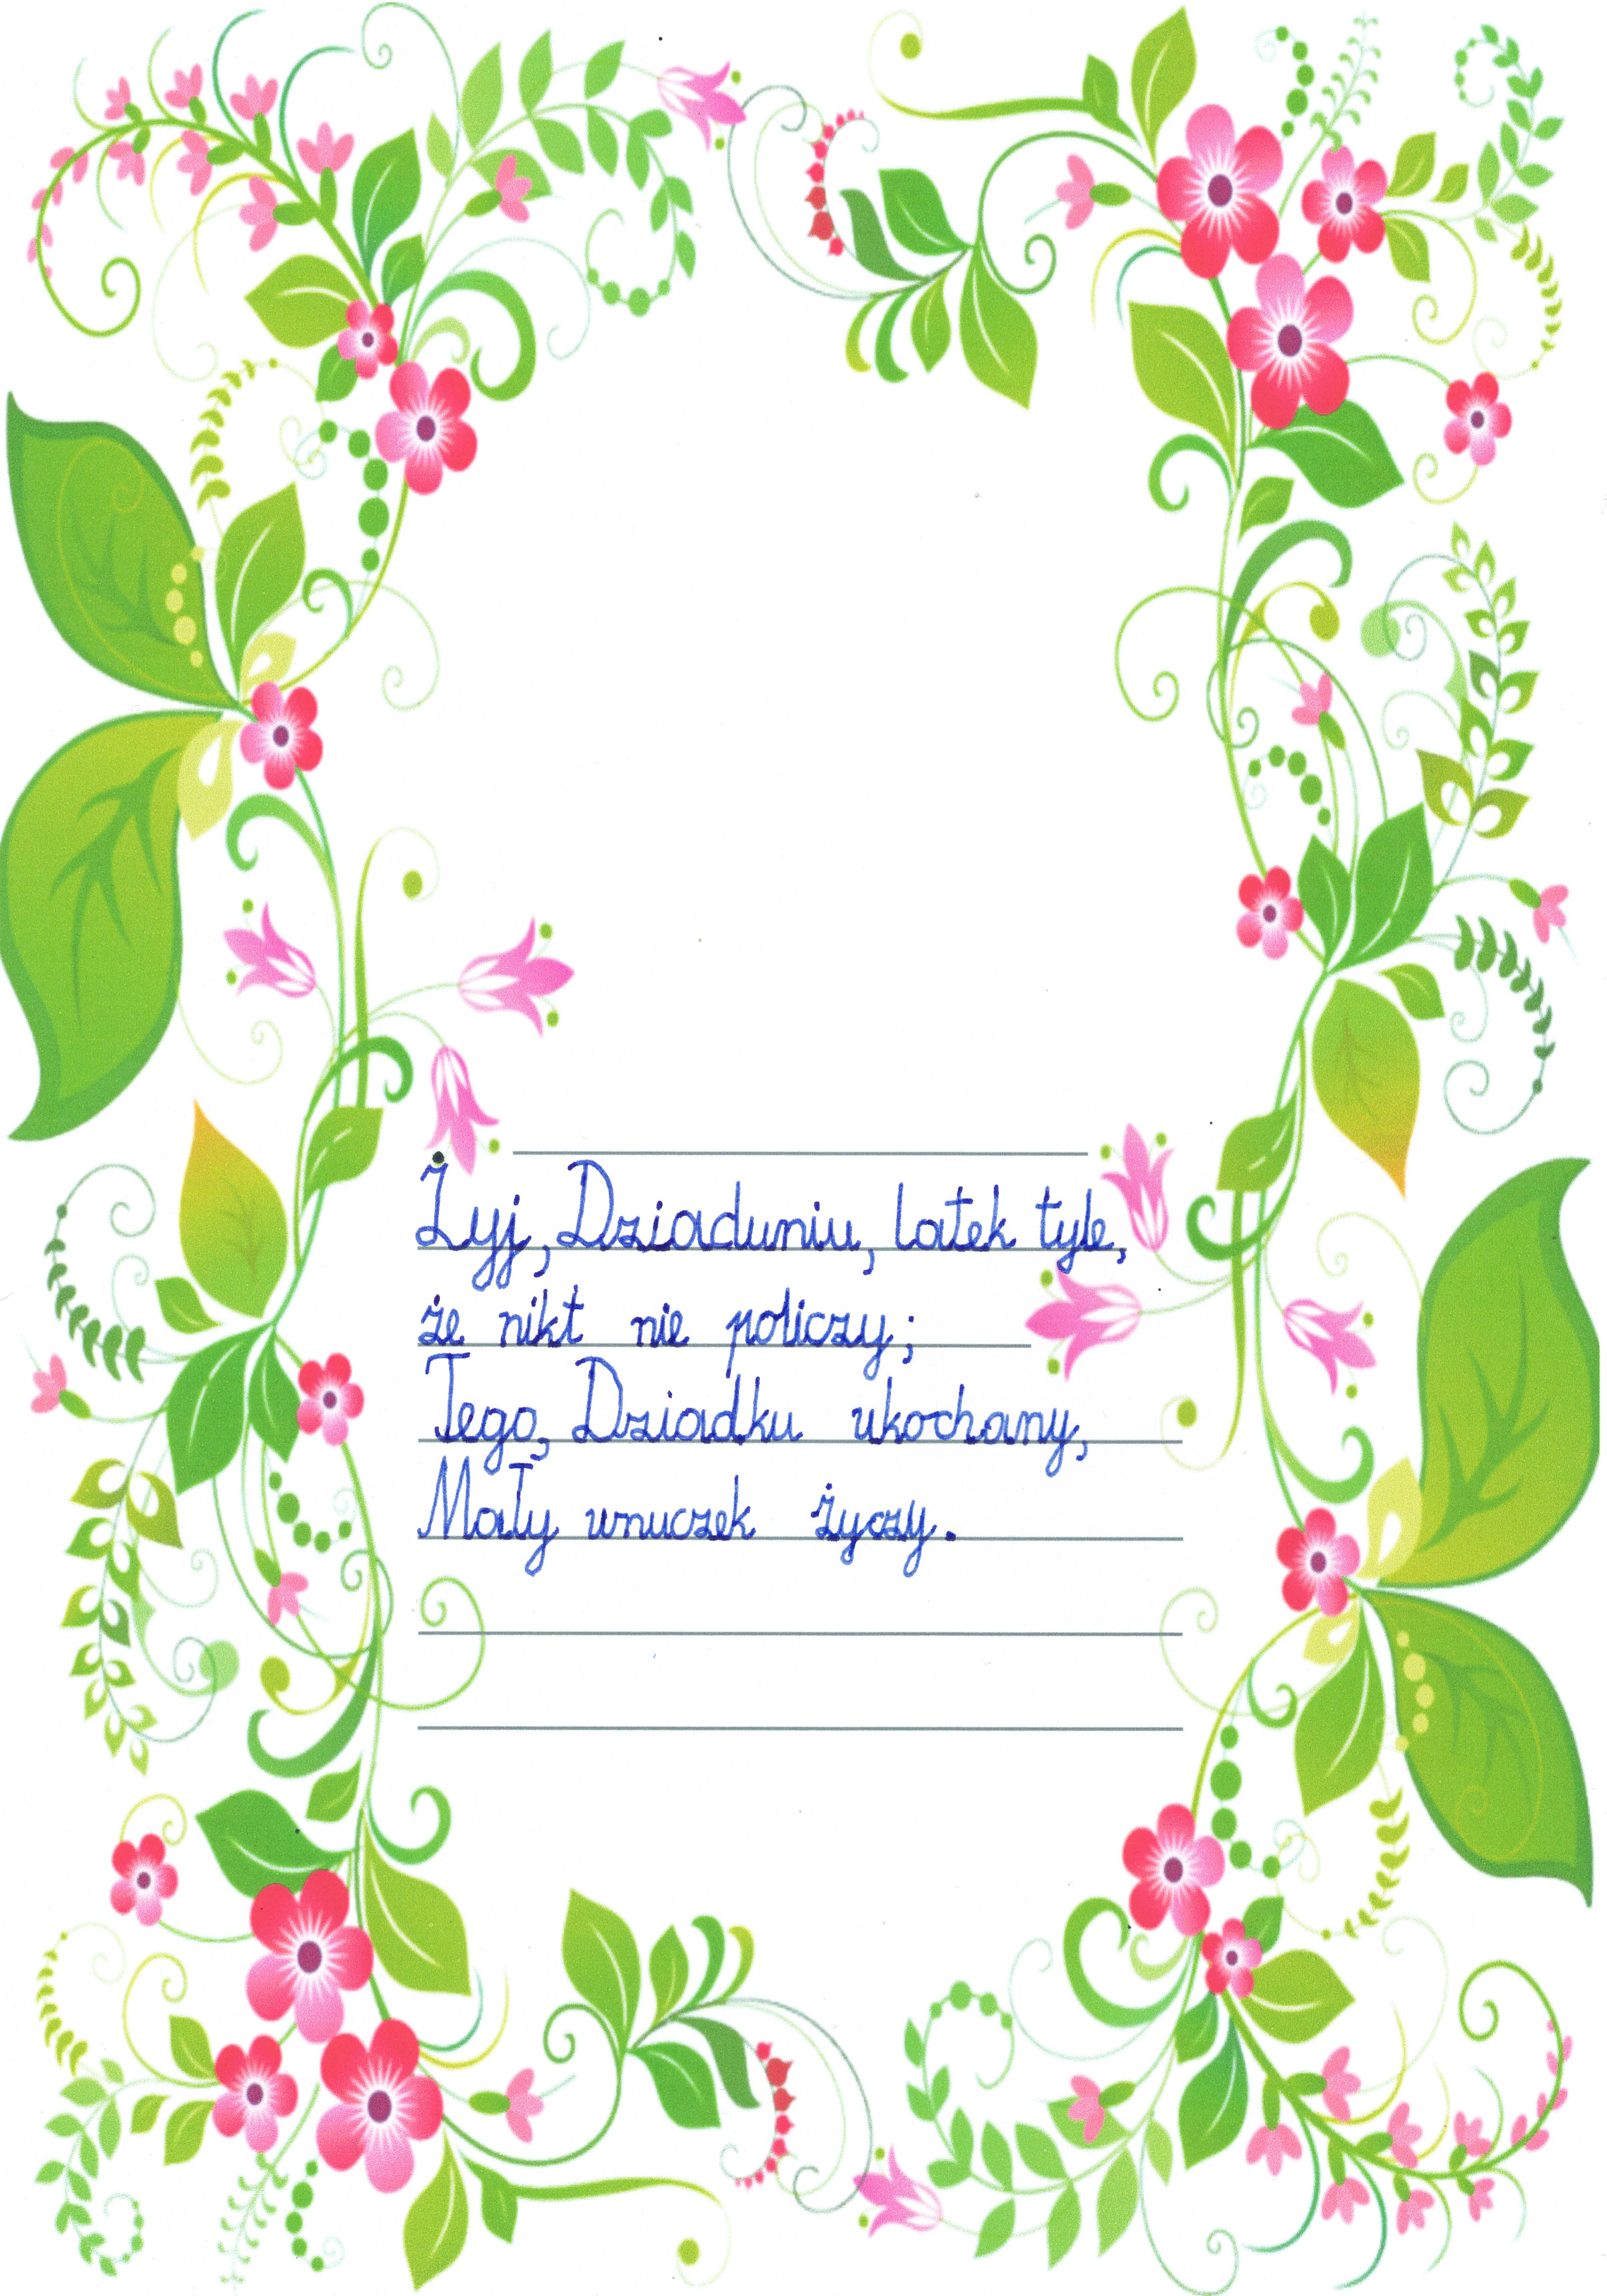 Żyj, Dziaduniu, latek tyle,
że nikt nie policzy;
Tego, Dziadku ukochany,
Mały wnuczek życzy.